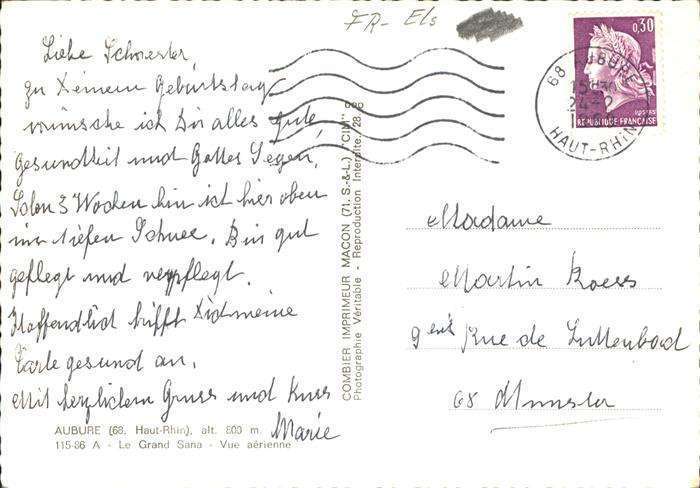 FR- Els
Liebe Schwester,
zu Deinem Geburtstag
wünsche ich Dir alles gute,
gesundheit und Gottes Segen.
Schon 3 Wochen bin ich hier oben
im tiefen Schnee. Bin gut
gepflegt und verpflegt.
Hoffendlich trifft Dich meine
Carte gesund an.
Mit herzlichem Gruss und Kuss
Marie
AUBURE (68. Haut-Rhin), alt. 800 m.
115-86 A - Le Grand Sana - Vue aérienne
COMBIER IMPRIMEUR MACON (71. S.-&-L.) "CIM"
Photographie Véritable - Reproduction Interdite.
0,30
REPUBLIQUE FRANÇAISE
68 AUBURE
15H30
24-2
HAUT-RHIN
Madame
Martin
Rue de Luttenbach
68 Munster